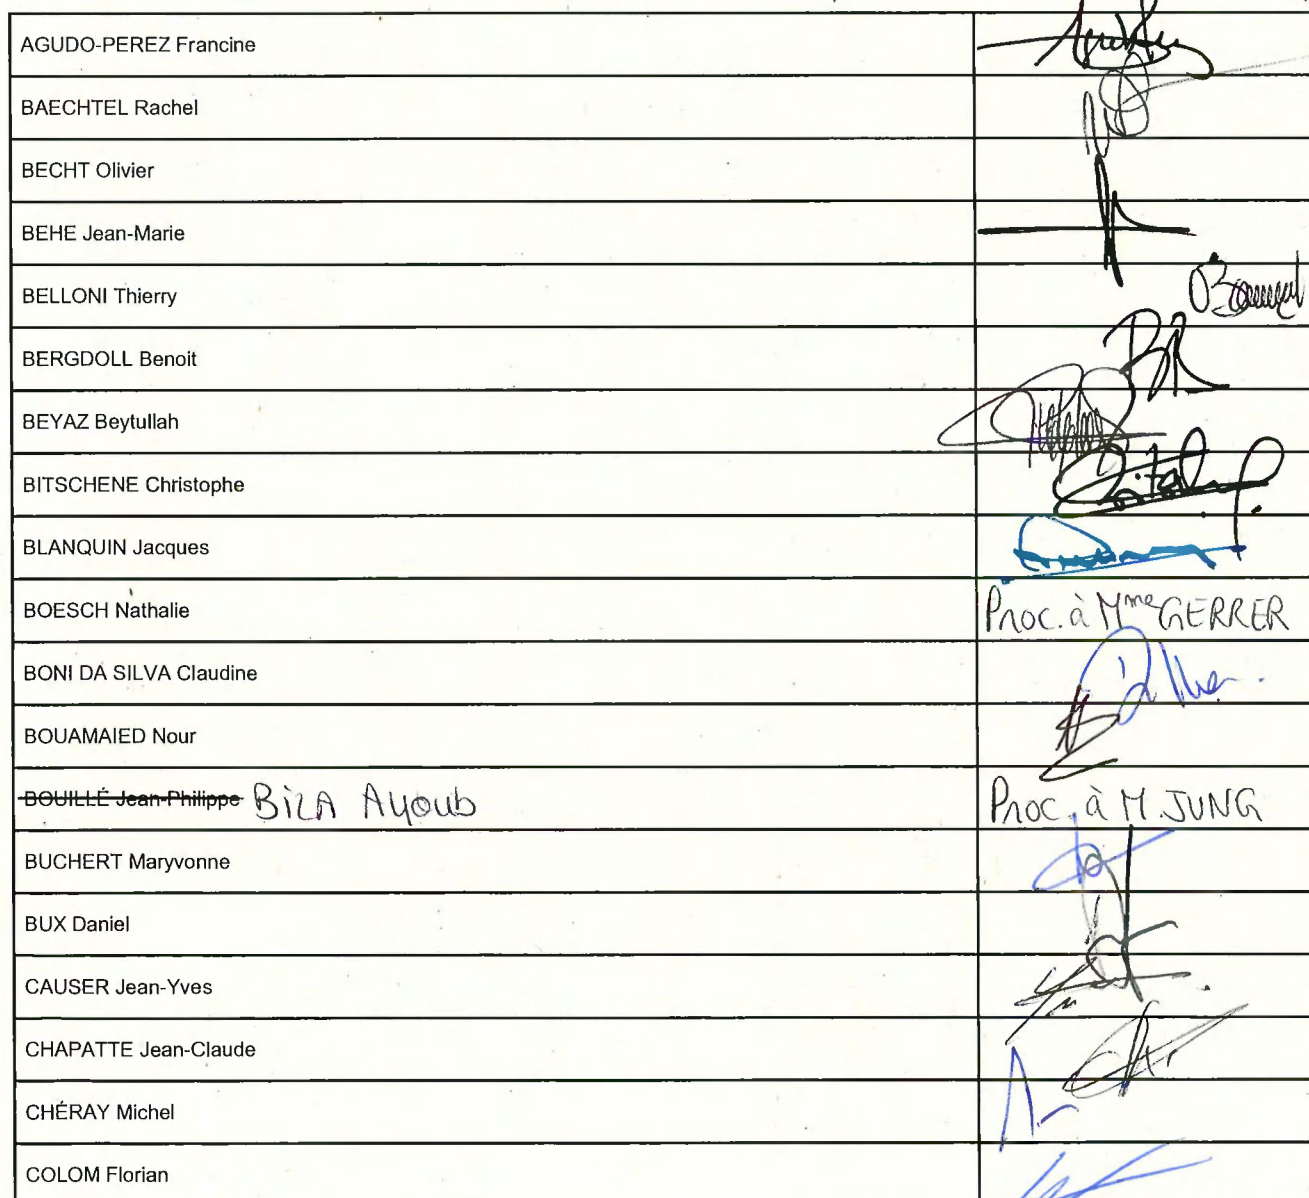 AGUDO-PEREZ Francine
BAECHTEL Rachel
BECHT Olivier
BEHE Jean-Marie
BELLONI Thierry
BERGDOLL Benoit
BEYAZ Beytullah
BITSCHENE Christophe
BLANQUIN Jacques
BOESCH Nathalie Proc. à Mme GERRER
BONI DA SILVA Claudine
BOUAMAIED Nour
BOUILLÉ Jean-Philippe BiLA Ayoub Proc. à M. JUNG
BUCHERT Maryvonne
BUX Daniel
CAUSER Jean-Yves
CHAPATTE Jean-Claude
CHÉRAY Michel
COLOM Florian